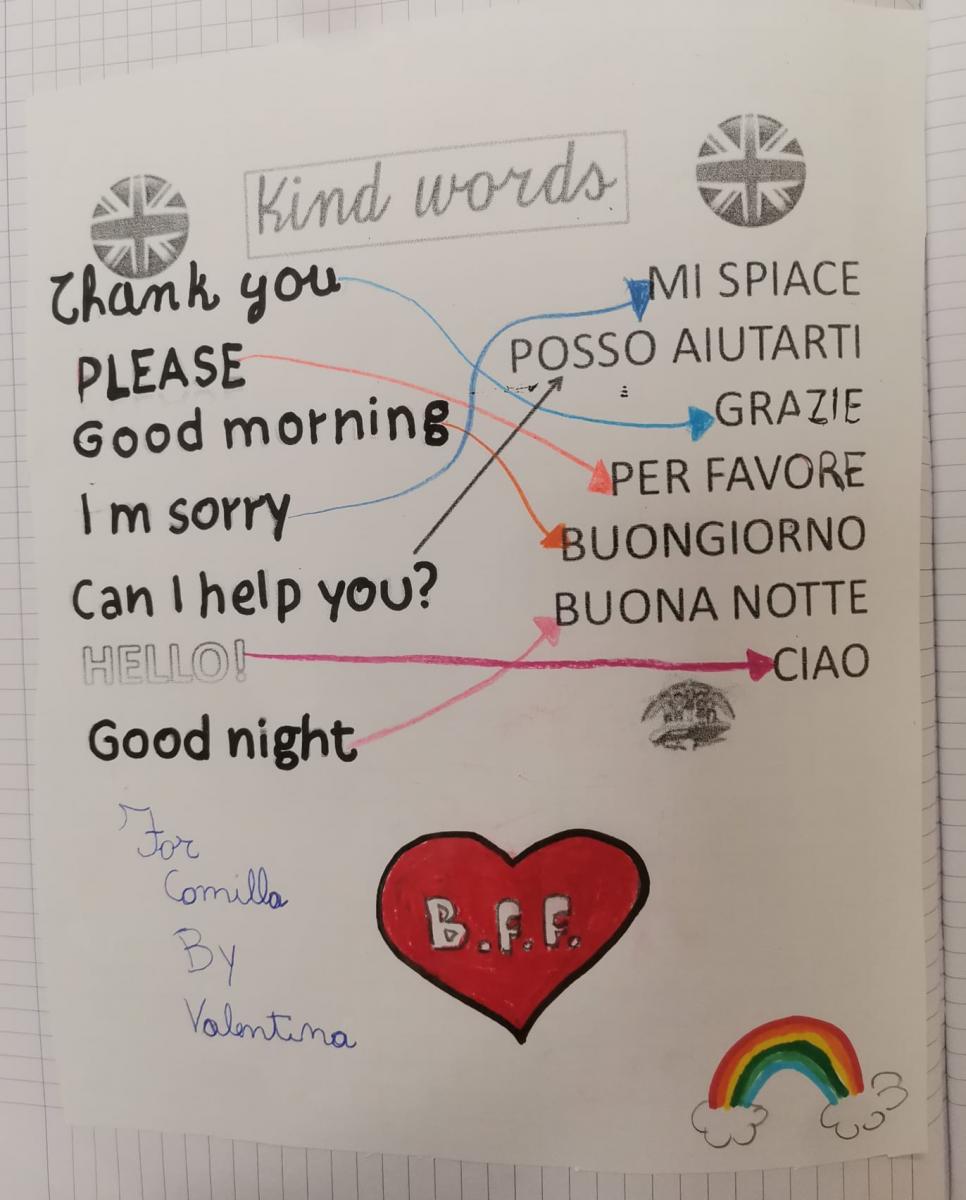 Kind words
Thank you
PLEASE
Good morning
I m sorry
Can I help you?
HELLO!
Good night
MI SPIACE
POSSO AIUTARTI
GRAZIE
PER FAVORE
BUONGIORNO
BUONA NOTTE
CIAO
For
Comilla
By
Valentina
B.F.F.